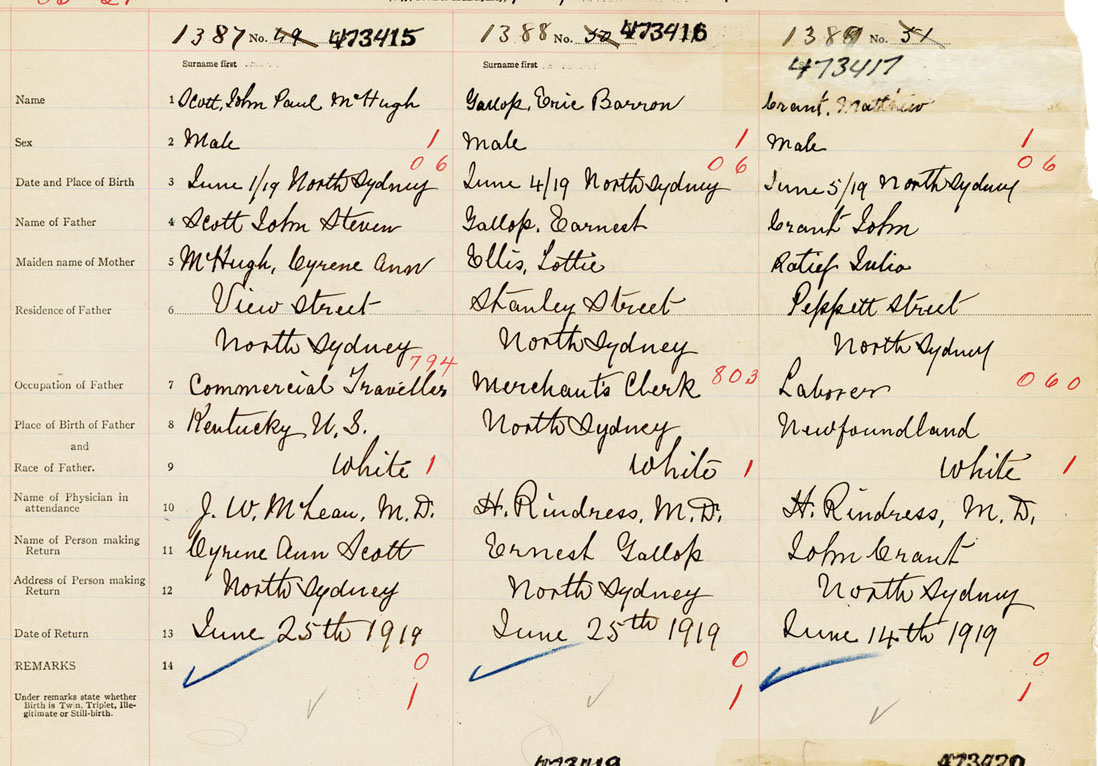 1387 No. 49 473415 1388 No. 50 473416 1389 No. 51
Surname first Surname first 473417
Name 1 Scott, John Paul McHugh Gallop, Eric Barron Grant, Matthew
Sex 2 Male 1 Male 1 Male 1
06 06 06
Date and Place of Birth 3 June 1/19 North Sydney June 4/19 North Sydney June 5/19 North Sydney
Name of Father 4 Scott John Steven Gallop, Earnest Grant John
Maiden name of Mother 5 McHugh, Cyrene Ann Ellis, Lottie Julia
Residence of Father 6 View Street Stanley Street Peppett Street
North Sydney North Sydney North Sydney
794
Occupation of Father 7 Commercial Traveller Merchants Clerk 803 Laborer 060
Place of Birth of Father 8 Kentucky U.S. North Sydney Newfoundland
and
Race of Father. 9 White 1 White 1 White 1
Name of Physician in
attendance 10 J. W. McLean, M.D. H. Rindress, M.D. H. Rindress, M.D.
Name of Person making
Return 11 Cyrene Ann Scott Ernest Gallop John Grant
Address of Person making
Return 12 North Sydney North Sydney North Sydney
Date of Return 13 June 25th 1919 June 25th 1919 June 14th 1919
REMARKS 14 0 0 0
Under remarks state whether
Birth is Twin, Triplet, Ille-
gitimate or Still-birth. 1 1 1